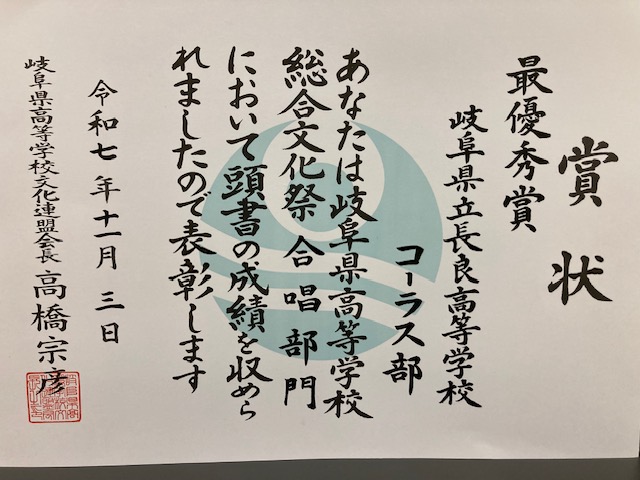 賞状
最優秀賞
岐阜県立長良高等学校
コーラス部
あなたは岐阜県高等学校
総合文化祭 合唱部門
において頭書の成績を収めら
れましたので表彰します
令和七年十一月三日
岐阜県高等学校文化連盟会長 高橋宗彦